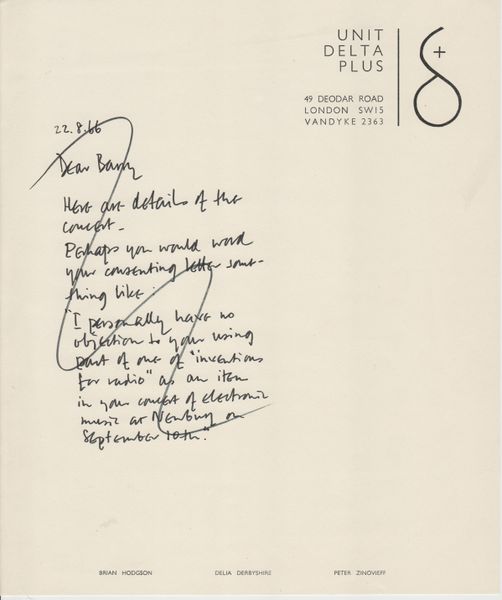 UNIT
DELTA
PLUS
+
49 DEODAR ROAD
LONDON SW15
VANDYKE 2363
22.8.66
Dear Barry
Here are details of the
concert.
Perhaps you would word
your consenting letter some-
thing like:
"I personally have no
objection to your using
part of one of "inventions
for radio" as an item
in your concert of electronic
music at Newbury on
September 10th."
BRIAN HODGSON DELIA DERBYSHIRE PETER ZINOVIEFF